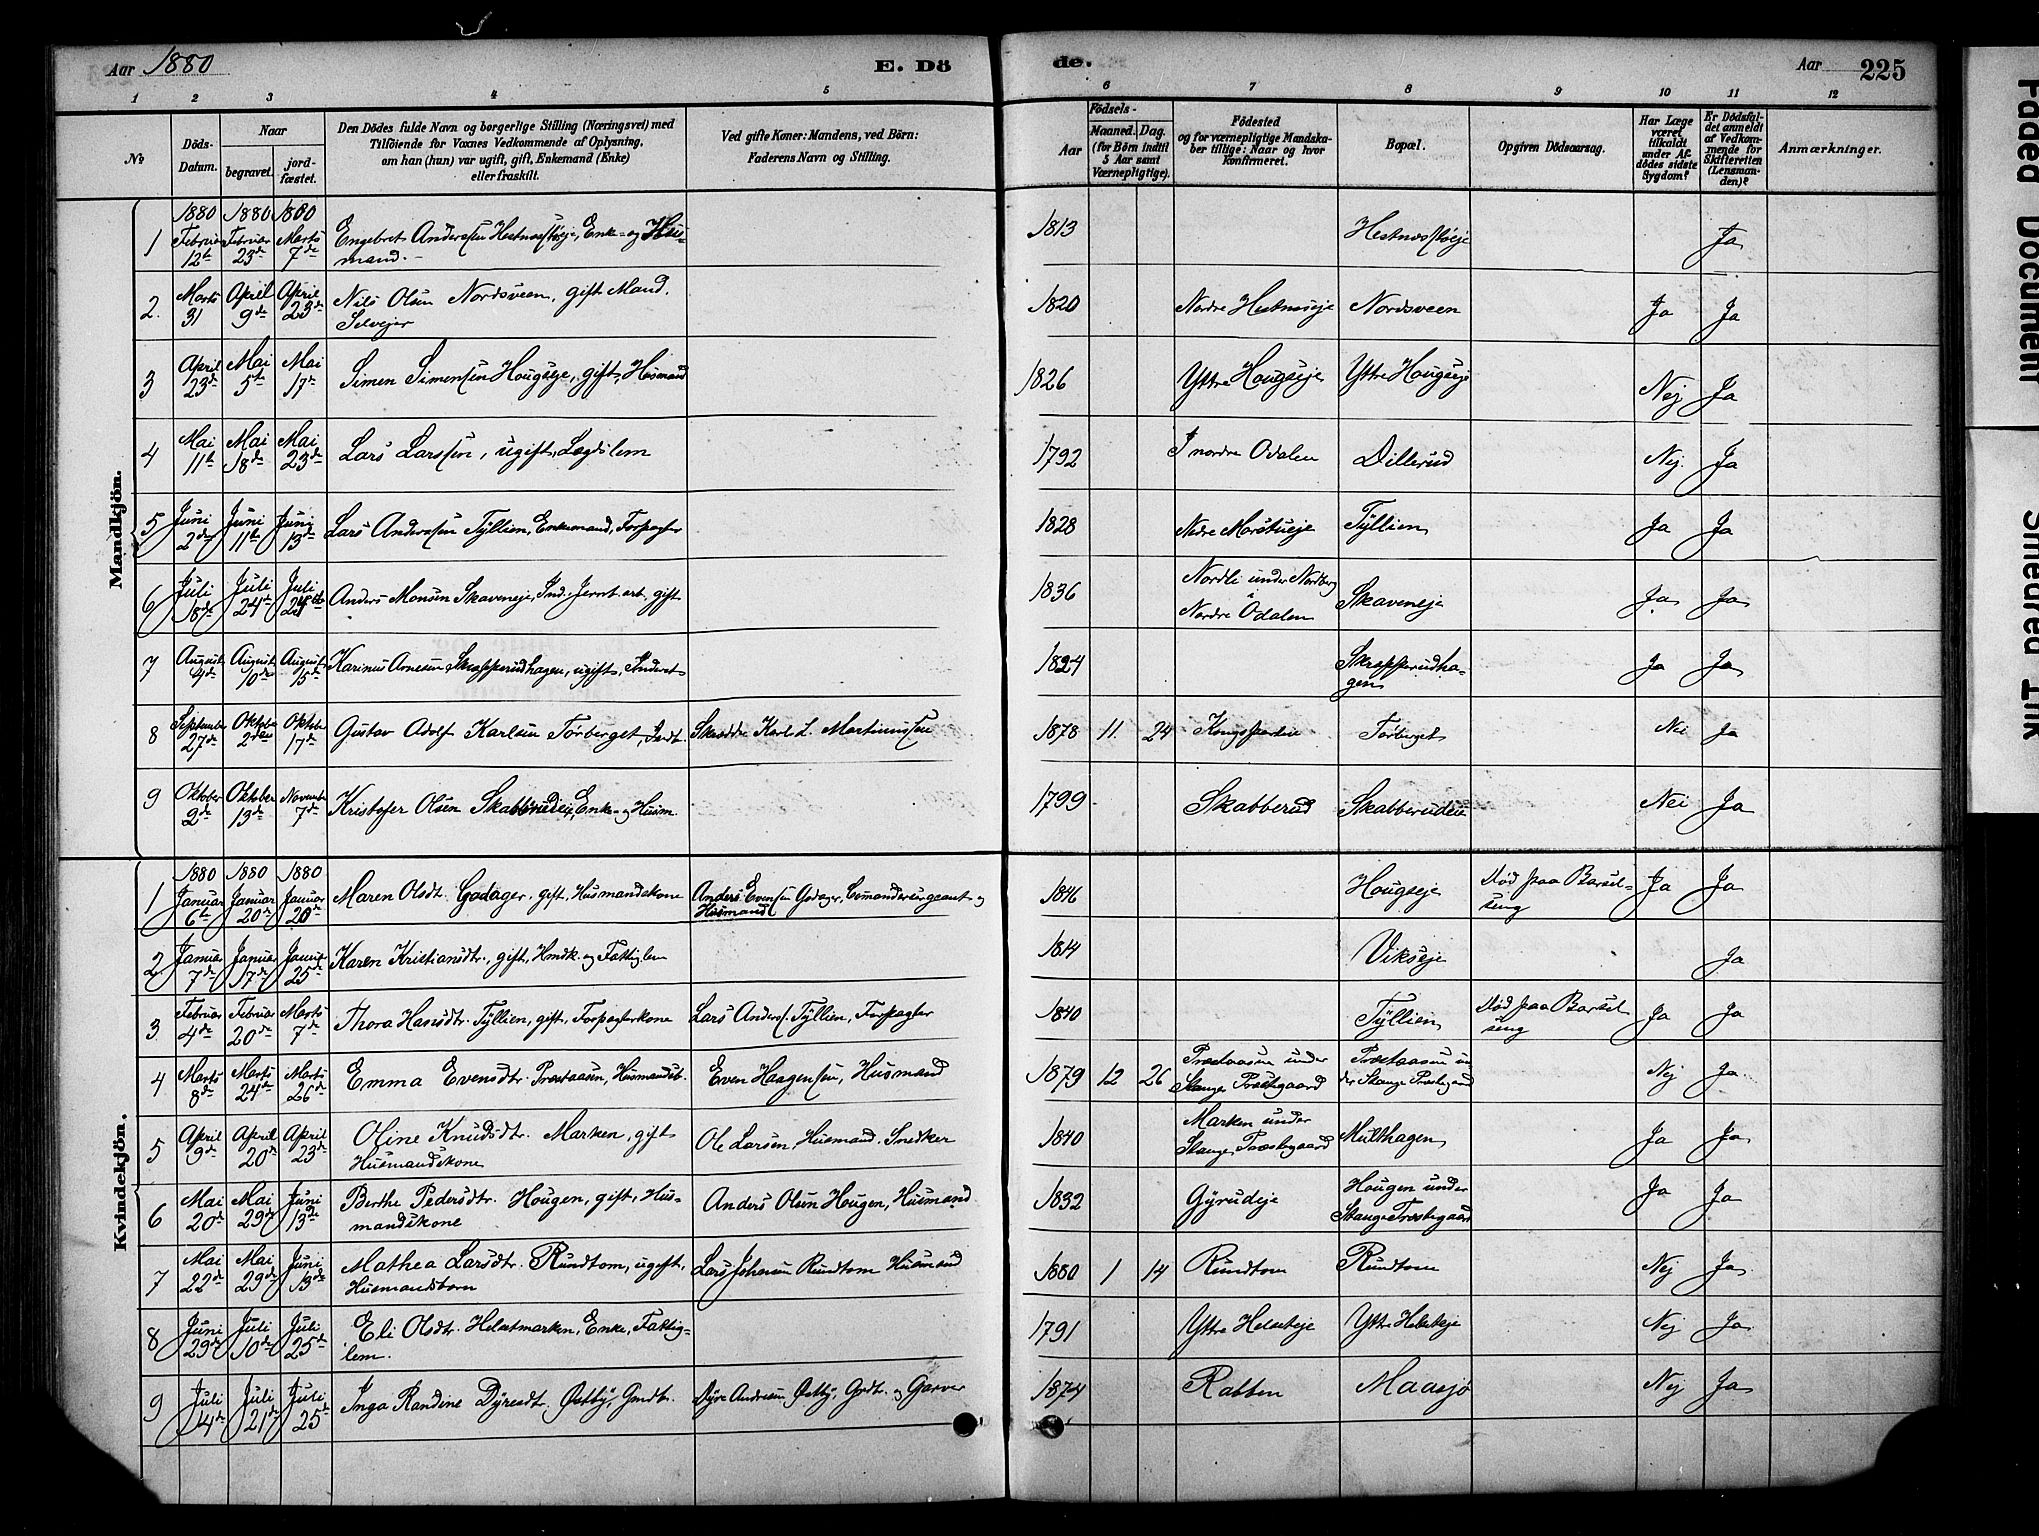 Aar 1880
E. Dö
de.
Aar 225
1 2 3 4 5 6 7 8 9 10 11 12
No
Döds-Datum.
Naar
begravet.
jord-fæstet.
Den Dödes fulde Navn og borgerlige Stilling (Næringsvei) med
Tilföiende for Voxnes Vedkommende af Oplysning,
om han (hun) var ugift, gift, Enkemand (Enke)
eller fraskilt.
Ved gifte Koner: Mandens, ved Börn:
Faderens Navn og Stilling.
Födsels-
Aar
Maaned. Dag.
(for Börn indtil
5 Aar samt
Værnepligtige).
Födested
og for værnepligtige Mandska-
ber tillige: Naar og hvor
konfirmeret.
Bopæl.
Opgiven Dödsaarsag.
Har Læge
været
tilkaldt
under Af-
dödes sidste
Sygdom?
Er Dödsfal-
det anmeldt
af Vedkom-
mende for
Skifteretten
(Lensman-
den)?
Anmærkninger.
Mandkjön.
1880 1880 1880
1 Februar 12te Februar 23de Marts 7de Engebret Anderssen Hestnæsseje, Enke- og Hus-
mand. 1813 Ja
2. Marts 31 April 9de April 23de Nils Olsen Nordsveen, gift Mand.
Selvejer 1820 Nordre Hestnæseje Nordsveen Ja Ja
3 April 23de Mai 5te Mai 17de Simen Simenssen Hougseje, gift, Husmand 1826 Yttre Hougseje Yttre Hougseje Nej Ja
4 Mai 11te Mai 18de Mai 23de Lars Larssen, ugift, Lægdslem 1792 I nordre Odalen Dillerud Nej. Ja
5 Juni 2den Juni 11te Juni 13de Lars Anderssen Tyllien, Enkemand, Forpagter 1828 Nedre Tyllien Ja Ja
6 Juli 18de Juli 24de Juli Anders Monsen Skaveneje, Ind. Jernt. arb. gift 1836 Nordli under Nordberg
i Nordre Odalen Skaveneje Ja Ja
7 August August 10de August 15de Karinus Arnesen Skrapperudhagen, ugift, Inderst 1824 Skrapperudha-
gen Ja Ja
8 September 27de Oktober 2den Oktober 17de Gustav Adolf Karlsen Torberget, Indt. Skrædder Karl L. Martinussen 1878 11. 24 Kongsparten Torberget Nei Ja
9 Oktober 2de Oktober 13de November 7de Kristofer Olsen Skabberudeie, Enke- og Husm. 1799 Skabberud Skabberudeie Nei Ja
Kvindekjön.
1880 1880 1880
1 Januar 6te Januar 20de Januar 20de Maren Olsdt. Godager, gift, Husmandskone Anders Evensen Godager, Comandersergeant og
Husmand 1846 Hougseje Død paa Barsel-
seng Ja Ja
2 Januar 7de Januar 17de Januar 25de Karen Kristiansdtr., gift, Hmdk. og Fattiglem 1814 Vikseje Ja
3 Februar 4de Februar 20de Marts 7de Thora Hansdtr. Tyllien, gift, Forpagterkone Lars Anderss. Tyllien, Forpagter 1840 Tyllien Død paa Barsel
seng Ja Ja
4 Marts 8de Marts 24de Marts 26de Emma Evensdtr. Præstaasen, Husmandsb. Even Haagenssen, Husmand 1879 12 26 Præstaasen under
Stange Præstegaard Præstaasen un
der Stange Præstegaard Nej Ja
5 April 9de April 20de April 23de Oline Knudsdtr. Marken, gift
Husmandskone Ole Larsen, Husmand. Snedker 1840 Marken under
Stange Præstegaard Multhagen Ja Ja
6 Mai 20de Mai 29de Juni 13de Berthe Pedersdtr. Hougen, gift, Hus-
mandskone Anders Olsen Hougen, Husmand 1832 Gyrudeje Hougen under
Stange Præstegaard Ja Ja
7 Mai 22de Mai 29de Juni 13de Mathea Larsdtr. Rundtom, ugift,
Husmandsbarn Lars Johansen Rundtom Husmand 1880 1 14 Rundtom Rundtom Nej Ja
8 Juni 29de Juli 10de Juli 25de Eli Olsdtr. Helsetmarken, Enke, Fattig-
lem. 1791 Yttre Helseteje Yttre Helseteje Nej Ja
9 Juli 14de Juli 21de Juli 25de Inga Randine Dyresdtr. Østby, Gmdt. Dyre Andresen Østby, Grdt. og Garver 1874 Rabben Maasjø Nej Ja
Faded Document
Smeared Ink